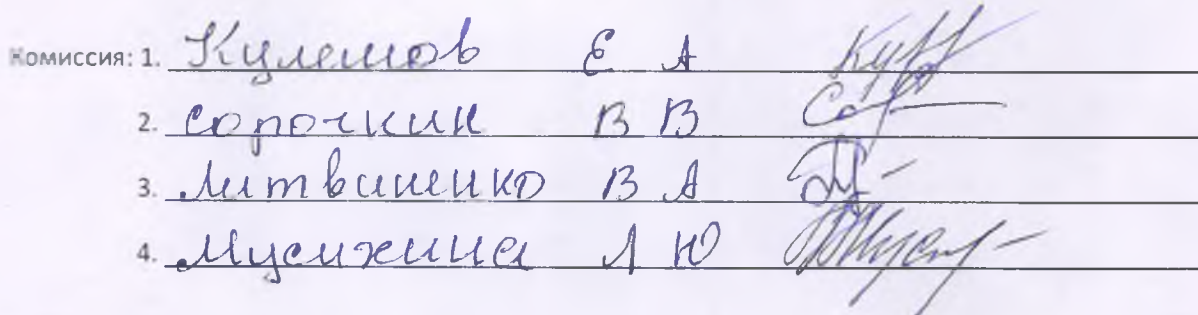 Комиссия: 1. Кулешов Е А
2. Сорочкин В В
3. Литвиненко В А
4. Мусихина Л Ю